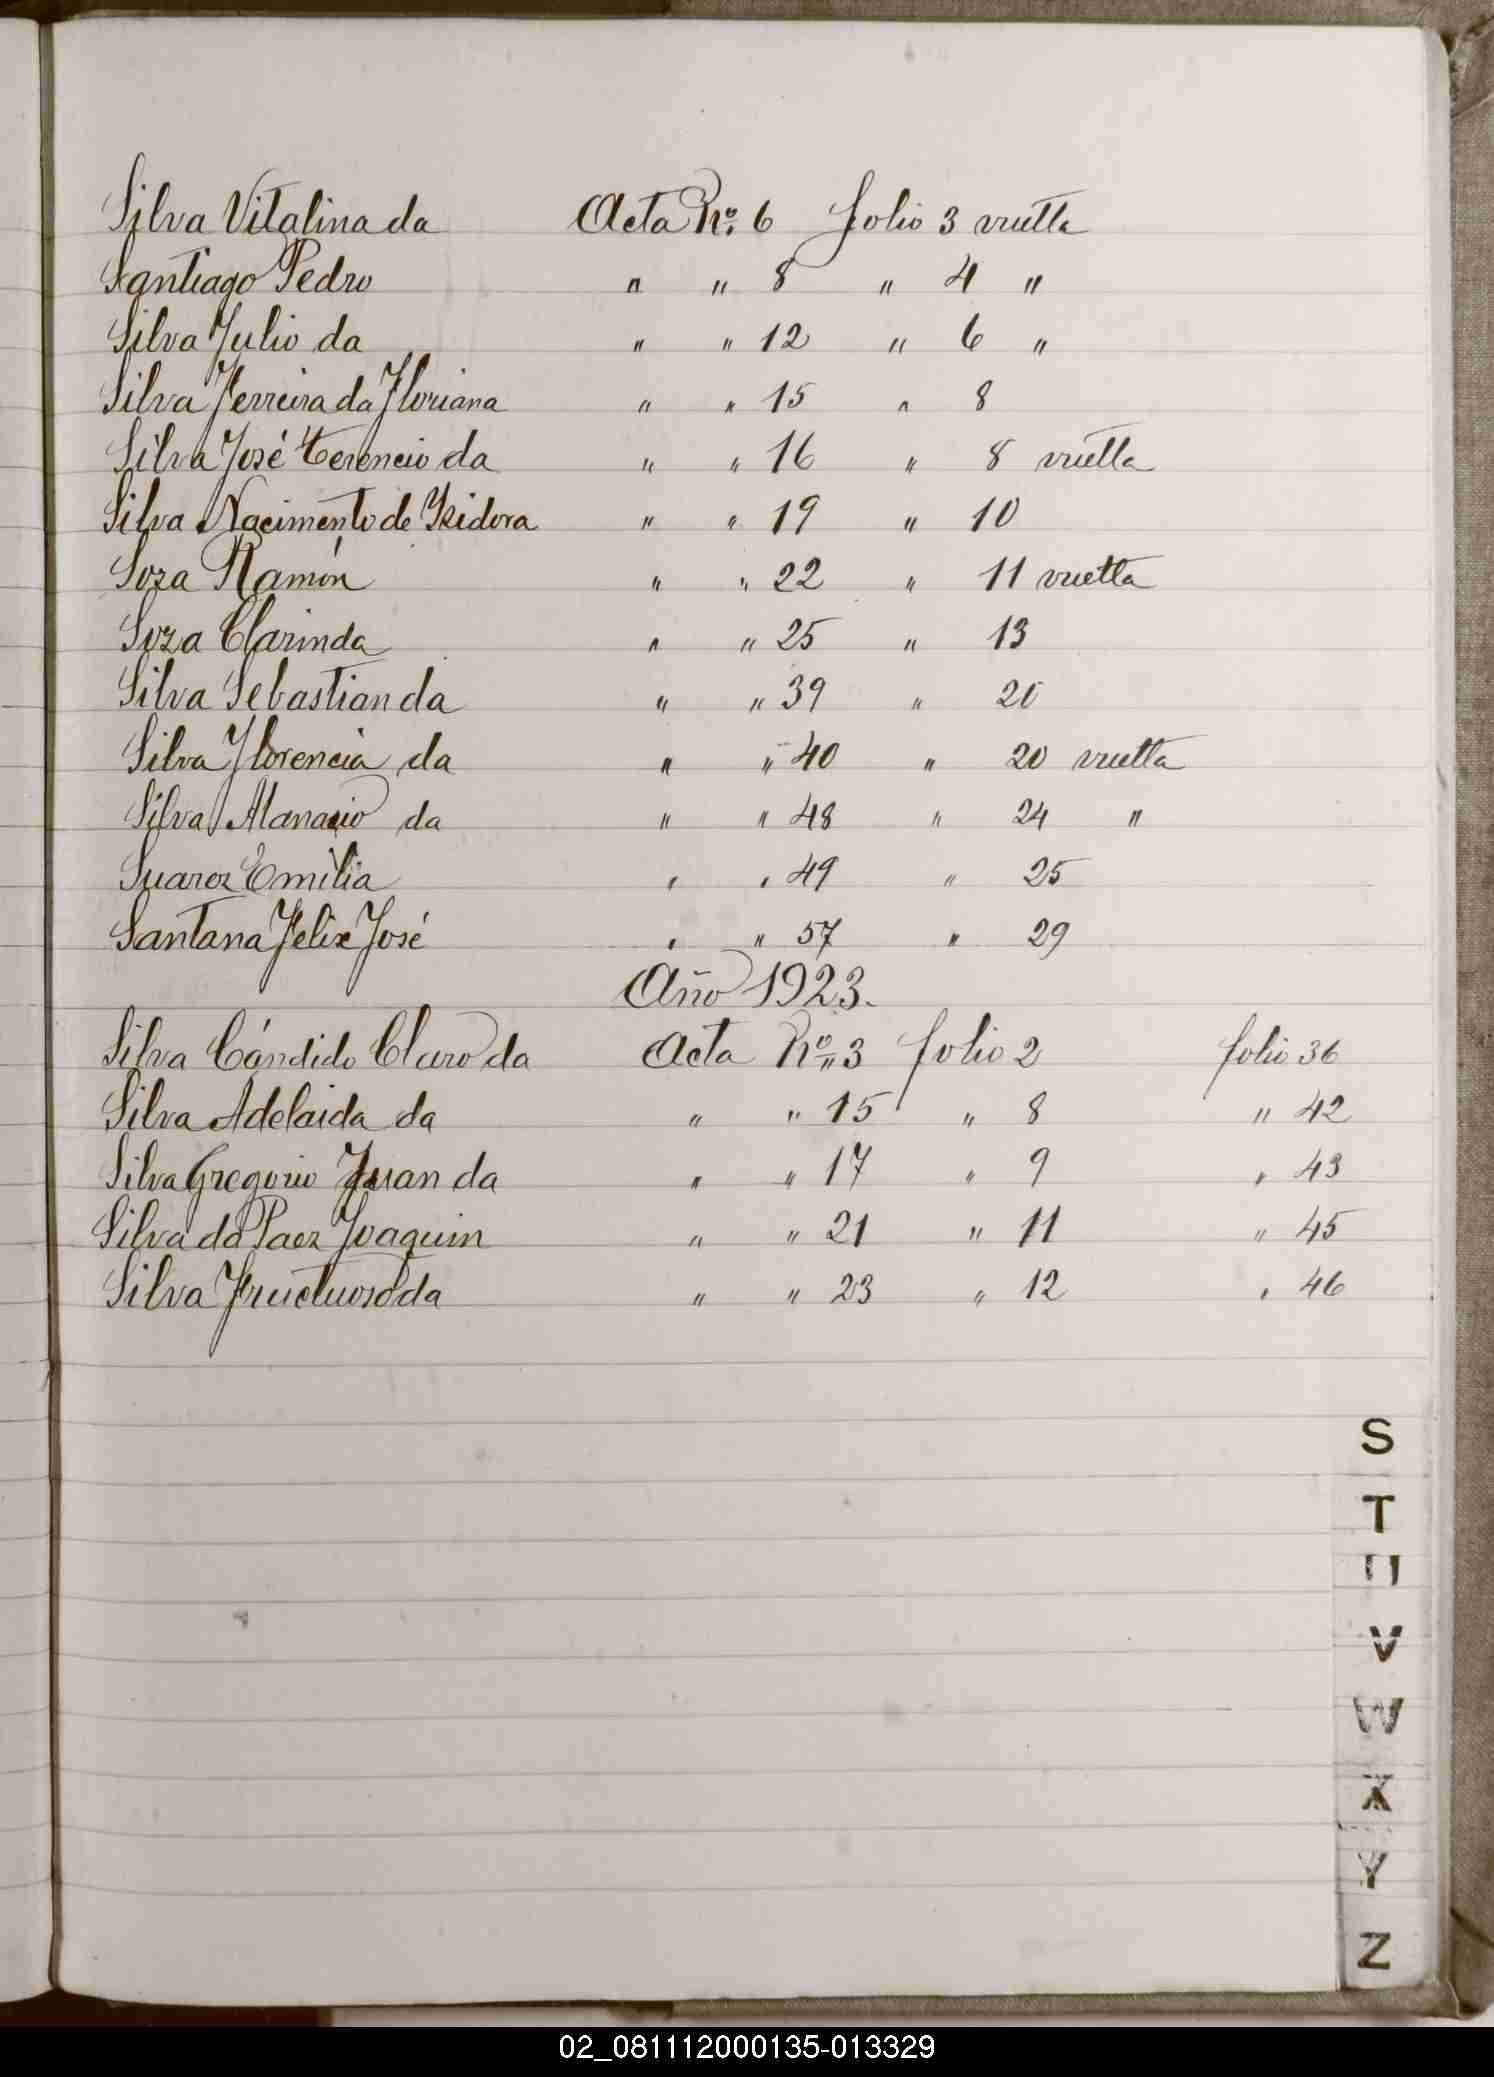 Silva Vitalina da Acta Nº. 6 folio 3 vuelta
Santiago Pedro " " 8 " 4 "
Silva Julio da " " 12 " 6 "
Silva Ferreira da Floriana " " 15 " 8
Silva José Terencio da " " 16 " 8 vuelta
Silva Nacimento de Isidora " " 19 " 10
Soza Ramón " " 22 " 11 vuelta
Soza Clarinda " " 25 " 13
Silva Sebastian da " " 39 " 20
Silva Florencia da " " 40 " 20 vuelta
Silva Atanacio da " " 48 " 24 "
Suarez Emilia " " 49 " 25
Santana Felix José " " 57 " 29
Año 1923.
Silva Cándido Claro da Acta Nº 3 folio 2 folio 36
Silva Adelaida da " " 15 " 8 " 42
Silva Gregorio Juan da " " 17 " 9 " 43
Silva da Paez Joaquin " " 21 " 11 " 45
Silva Fructuoso da " " 23 " 12 " 46
S
T
U
V
W
X
Y
Z
02_081112000135-013329